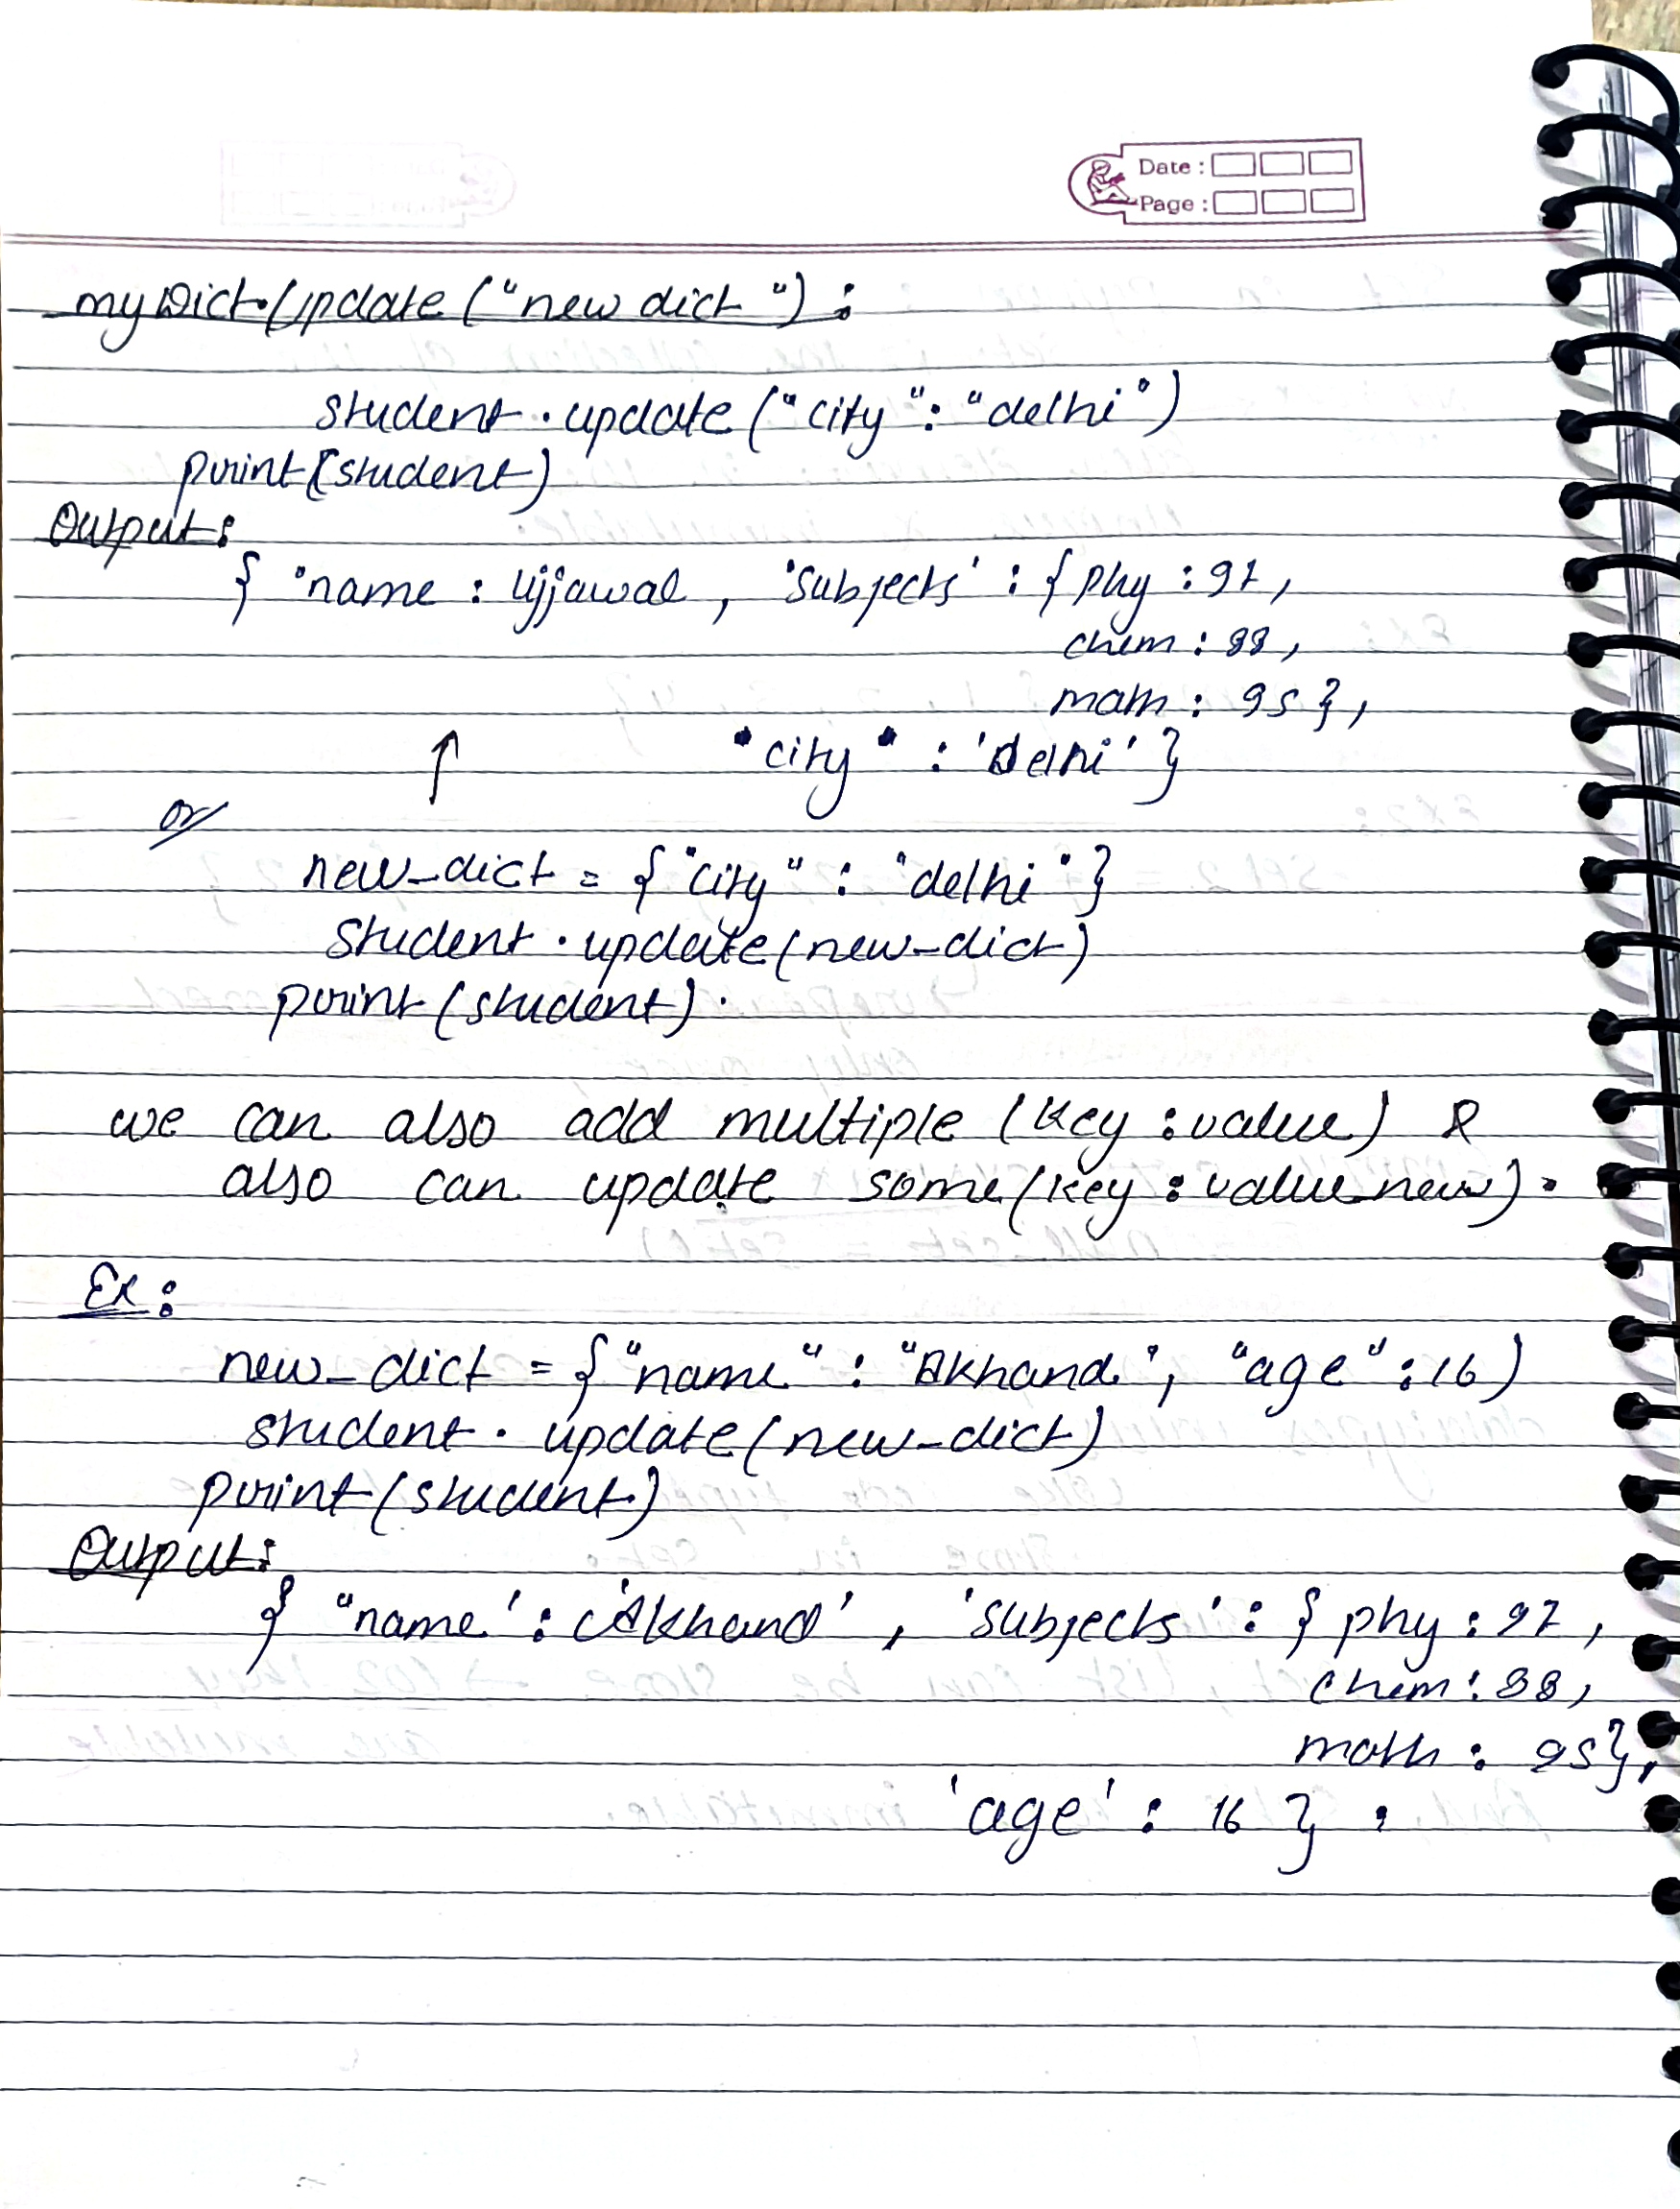 Date :
Page :
myDict.Update ("new dict ") :
student . update ("city" : "delhi")
print(student)
Output:
{ 'name : Ujjawal , 'subjects' : { phy : 97,
chem : 88,
math : 95 },
"city" : 'Delhi' }
or
new_dict = {"city" : "delhi"}
student . update (new_dict)
print (student) .
we can also add multiple (Key : value) &
also can update some (key : value new) .
Ex :
new_dict = { "name" : "Akhand", "age" : 16)
student . update (new_dict)
print (student)
Output:
{ "name' : 'Akhand' , 'subjects' : { phy : 97 ,
chem : 88 ,
math : 95},
'age' : 16 } .